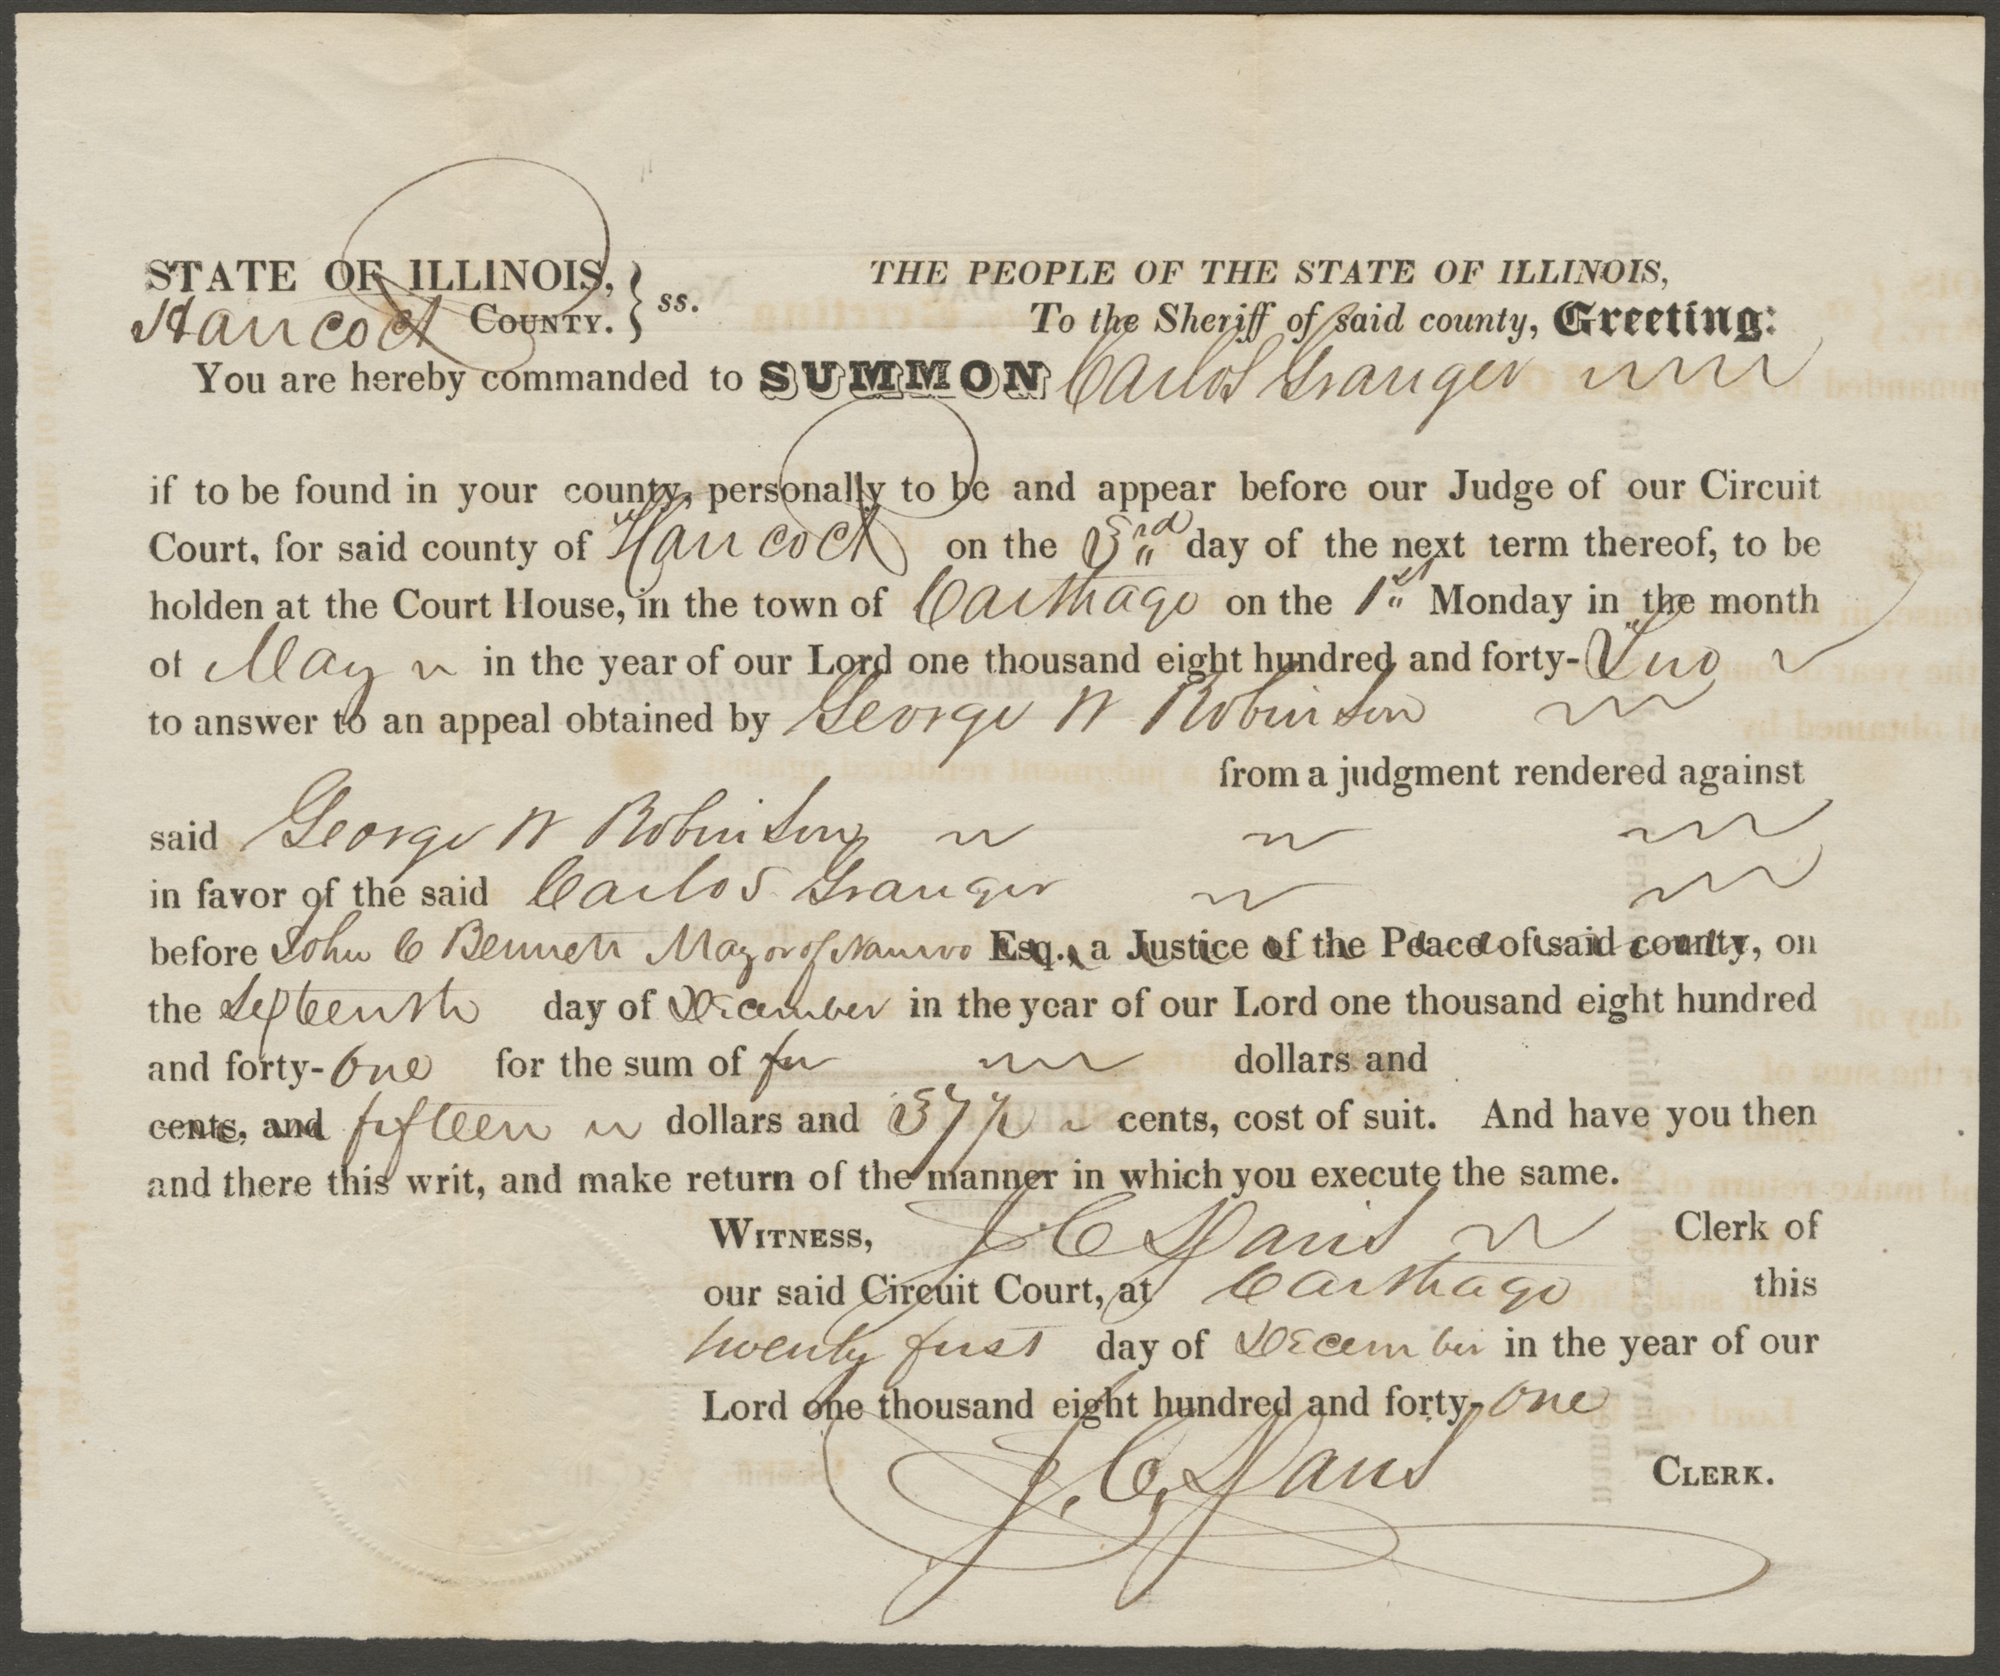 STATE OF ILLINOIS, } ss.
Hancock COUNTY.
THE PEOPLE OF THE STATE OF ILLINOIS,
To the Sheriff of said county, Greeting:
You are hereby commanded to SUMMON Carlos Granger
if to be found in your county, personally to be and appear before our Judge of our Circuit
Court, for said county of Hancock on the 3rd day of the next term thereof, to be
holden at the Court House, in the town of Carthage on the 1st Monday in the month
of May in the year of our Lord one thousand eight hundred and forty-Two
to answer to an appeal obtained by George W Robinson
from a judgment rendered against
said George W Robinson
in favor of the said Carlos Granger
before John C Bennett Mayor of Nauvoo Esq., a Justice of the Peace of said county, on
the Sixteenth day of December in the year of our Lord one thousand eight hundred
and forty-One for the sum of dollars and
cents, and fifteen dollars and 37½ cents, cost of suit. And have you then
and there this writ, and make return of the manner in which you execute the same.
WITNESS, J C Davis Clerk of
our said Circuit Court, at Carthage this
twenty first day of December in the year of our
Lord one thousand eight hundred and forty-one
J. C. Davis CLERK.